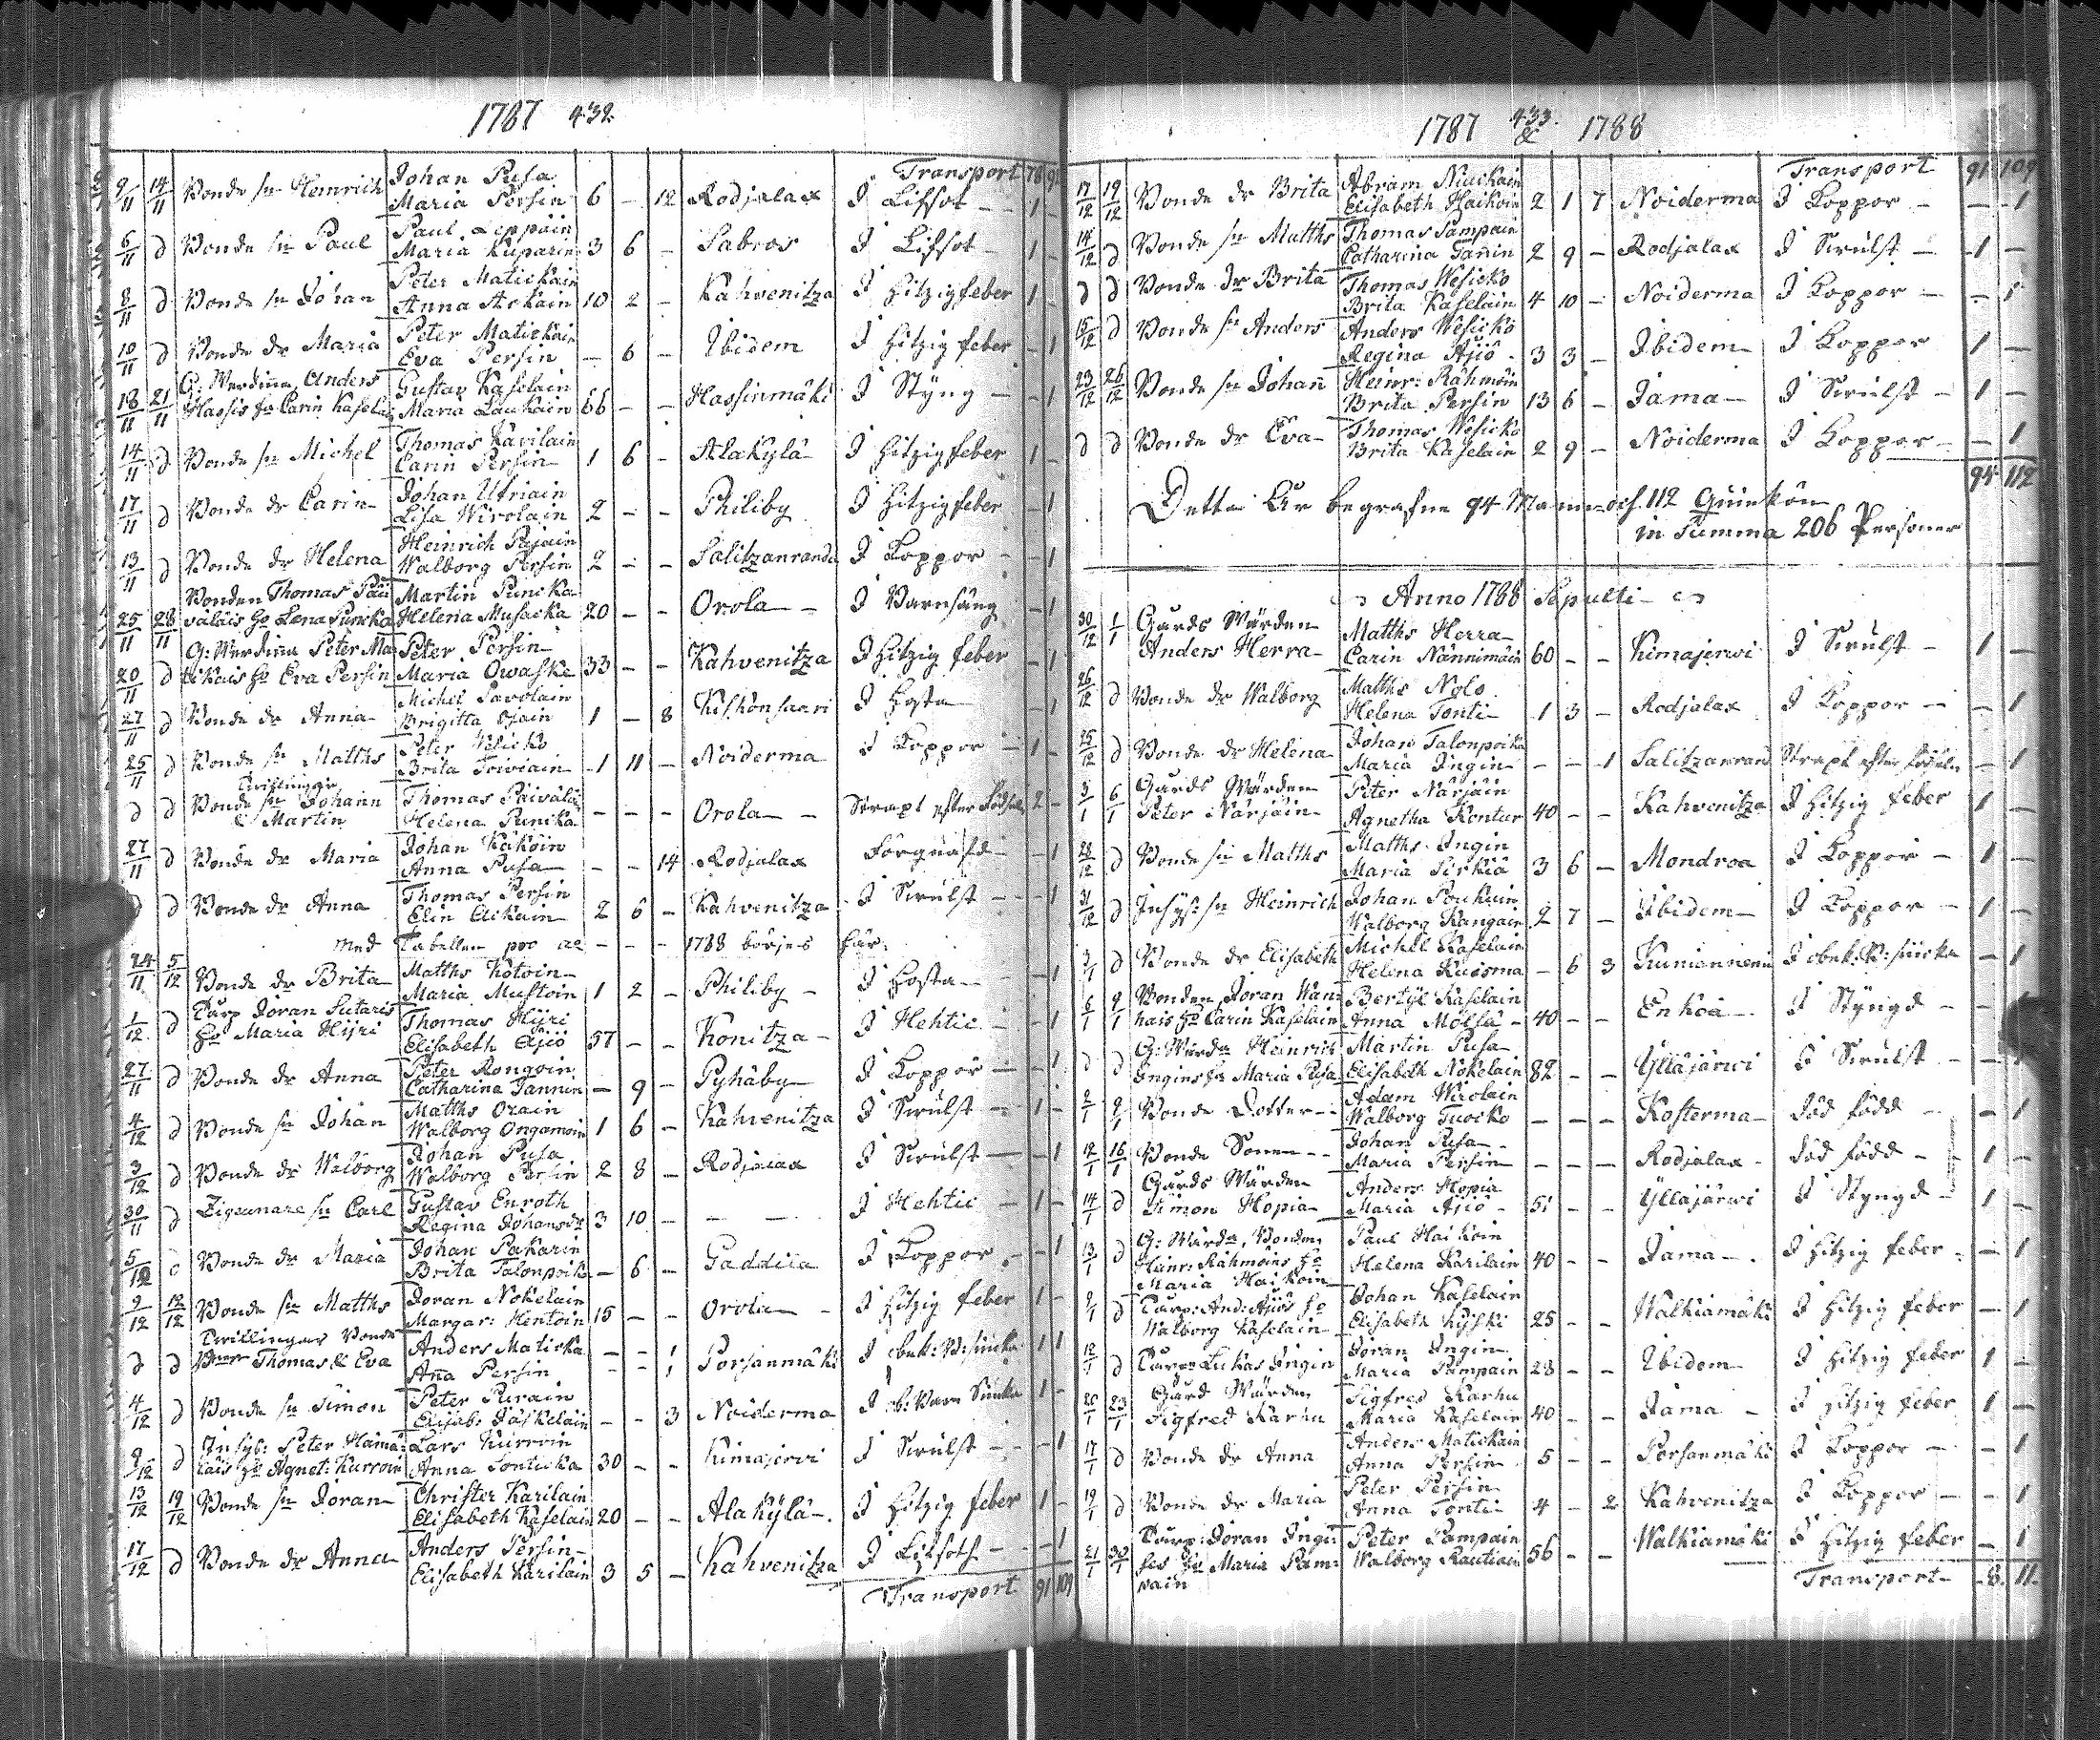 1787 432.
Transport 78
9/11 14/11 Bonde sn Heinrich Johan Pusa
Maria Persin 6 - 12 Rodjalax I Lifsot - 1 -
6/11 d Bonde sn Paul Paul Leppäin
Maria Kuparin 3 6 - Sabros I Lifsot - 1 -
8/11 d Bonde sn Johan Peter Matickain
Anna Askain 10 2 - Kahvenitza I Hitzigfeber 1 -
10/11 d Bonde dr Maria Peter Matickain
Eva Persin - 6 - Ibidem I Hitzig feber - 1
18/11 21/11 G: Werdinna Anders Gustav Kaselain
Hassis Carin Kasela Maria Laukain 66 - - Hassinmäki I Styng - - 1
14/11 d Bonde sn Michel Thomas Kavilain
Carin Persin 1 6 - Alakylä I Hitzigfeber 1 -
17/11 d Bonde dr Carin Johan Ufriain
Lisa Wirolain 2 - - Philiby I Hitzigfeber - 1
13/11 d Bonde dr Helena Heinrich Pajain
Walborg Persin 2 - - Salitzanranda I Koppor - - 1
Bonden Thomas Päi Martin Puncka
25/11 28/11 välais ho Lena Puncka Helena Musacka 20 - - Orola - I Barnsäng - 1
G: Werdinna Peter Ma Peter Persin
20/11 d tikais ho Eva Persin Maria Owaska 33 - - Kahvenitza I Hitzig feber - 1
27/11 d Bonde dr Anna Michel Savolain
Brigitta Ozain 1 - 8 Kiskonsaari I Hosta - 1
25/11 d Bonde sn Matths Peter Wesicko
Brita Toiviain 1 11 - Noiderma I Koppor - 1 -
Tvillingar
d d Bonde sn Johann Thomas Päiväläi
& Martin Helena Punicka - - - Orola - 2 -
27/11 d Bonde dr Maria Johan Käköin
Anna Pusa - - 14 Rodjalax Förquäfd - 1
d Bonde dr Anna Thomas Persin
Elin 2 6 - Kahvenitza I Swulst - - 1
med Tabellen pro ao - - - 1788 börjes här.
24/11 5/12 Bonde dr Brita Matths Kotoin
Maria Mustoin 1 2 - Philiby - I Hosta - - 1
1/12 d Torp Joran Sutaris Thomas Hijri
ho Maria Hijri Elisabeth Äjiö 57 - - Konitza - I Hehtic - 1
27/11 d Bonde dr Anna Peter Rongoin
Catharina Tannin - 9 - Pyhäby I Koppor - 1
4/12 d Bonde sn Johan Matths Ozain
Walborg Ongamoin 1 6 - Kahvenitza I Swulst - 1 -
3/12 d Bonde dr Walborg Johan Pusa
Walborg Persin 2 8 - Rodjalax I Swulst - 1
30/11 d Zigeunare sn Carl Gustav Enroth
Regina Johansdr 3 10 - - - I Hehtic - 1 -
5/12 d Bonde dr Maria Johan Pakarin
Brita Talonpoik - 6 - Gaddila I Koppor - 1
9/12 12/12 Bonde sn Matths Joran Nokelain
Margar: Hentoin 15 - - Orola - I Hitzig feber 1 -
Tvillingar Bonde
d d Thomas & Eva Anders Maticka
Anna Persin - - 1 Porsanmäki 1 1
4/12 d Bonde sn Simon Peter Purain
Elisab: Jäskelain - - 3 Noiderma 1 -
9/12 d Inhys: Peter Hämä Lars Kurroin
läis ho Agnet: Kurroin Anna Sonticka 30 - - Kimajerwi I Swulst - - 1
13/12 19/12 Bonde sn Joran Christer Karilain
Elisabeth Kaselain 20 - - Alakylä - I Hitzig feber 1 -
17/12 d Bonde dr Anna Anders Persin
Elisabeth Karilain 3 5 - Kahvenitza I Lifsoth - - 1
Transport 91 109
1787 433. & 1788
Transport 91 109
17/12 19/12 Bonde dr Brita Abram Niuckain
Elisabeth Haikoin 2 1 7 Noiderma I Koppor - - 1
14/12 d Bonde sn Matths Thomas Pampain
Catharina Tanin 2 9 - Rodjalax I Swulst - 1 -
d d Bonde dr Brita Thomas Wesicko
Brita Kaselain 4 10 - Noiderma I Koppor - - 1
15/12 d Bonde sn Anders Anders Wesicko
Regina Äjiö 3 3 - Ibidem I Koppor 1 -
23/12 26/12 Bonde sn Johan Heinr: Rähmöin
Brita Persin 13 6 - Jama - I Swulst - 1 -
d d Bonde dr Eva Thomas Wesicko
Brita Kaselain 2 9 - Noiderma I Koppor - - 1
94 112
Detta År begrafne 94 Mann- och 112 Quinkön
in Summa 206 Personer
Anno 1788 Sepulti
30/12 1/1 Gårds Wärden Matths Herra
Anders Herra Carin Nännimäin 60 - - Kimajerwi I Swulst - 1 -
26/12 d Bonde dr Walborg Matths Nolo
Helena Tonti 1 3 - Rodjalax I Koppor - - 1
25/12 d Bonde dr Helena Johan Talonpoika
Maria Ingin - - 1 Salitzanrand - 1
3/1 6/1 Gårds Wärden Peter Närjäin
Peter Närjäin Agnetha Kontur 40 - - Kahvenitza I Hitzig feber 1 -
28/12 d Bonde sn Matths Matths Ingin
Maria Sirkiä 3 6 - Mondroa I Koppor - 1 -
31/12 d Inhys: sn Heinrich Johan Poukain
Walborg Kangain 2 7 - Ibidem I Koppor - 1 -
3/1 d Bonde dr Elisabeth Michel Kaselain
Helena Kuisma - 6 3 - 1
6/1 9/1 Bonden Joran Wan Bertil Kaselain
hais ho Carin Kaselain Anna Mölsä 40 - - Enkoa - I Styngd - - 1
d d G: Wärda Heinrich Martin Pusa
Ingins Maria Pusa Elisabeth Nokelain 82 - - Ylläjärwi I Swulst - - 1
2/1 9/1 Bonde Dotter - Adam Wirolain
Walborg Tuocko - - - Kosterma död född - 1
12/1 16/1 Bonde Sonen - Johan Pusa
Maria Persin - - - Rodjalax död född - 1 -
14/1 d Gårds Wärden Anders Hopia
Simon Hopia Maria Äjiö 51 - - Ylläjärwi I Styngd - 1 -
13/1 d G: Wärda, Bonden Paul Haikoin
Heinr: Rähmöins ho Helena Karilain 40 - - Jama - I Hitzig feber - 1
Maria Haikoin
9/1 d Torp: And: Äjiös ho Johan Kaselain
Walborg Kaselain Elisabeth Kyiski 25 - - Walkiamäki I Hitzig feber - 1
12/1 d Torp: Lukas Ingin Joran Ingin
Maria Pampain 28 - - Ibidem I Hitzig feber 1 -
20/1 23/1 Gård Wärden Sigfred Karhu
Sigfred Karhu Maria Kaselain 40 - - Jama - I Hitzig feber 1 -
17/1 d Bonde dr Anna Anders Matickain
Anna Persin 5 - - Porsanmäki I Koppor - - 1
19/1 d Bonde dr Maria Peter Persin
Anna Tonti 4 - 2 Kahvenitza I Koppor - - 1
21/1 30/1 Torp: Joran Ingi Peter Pampain
Maria Pam Walborg Rautiain 56 - - Walkiamäki I Hitzig feber - 1
pain Transport 8. 11.